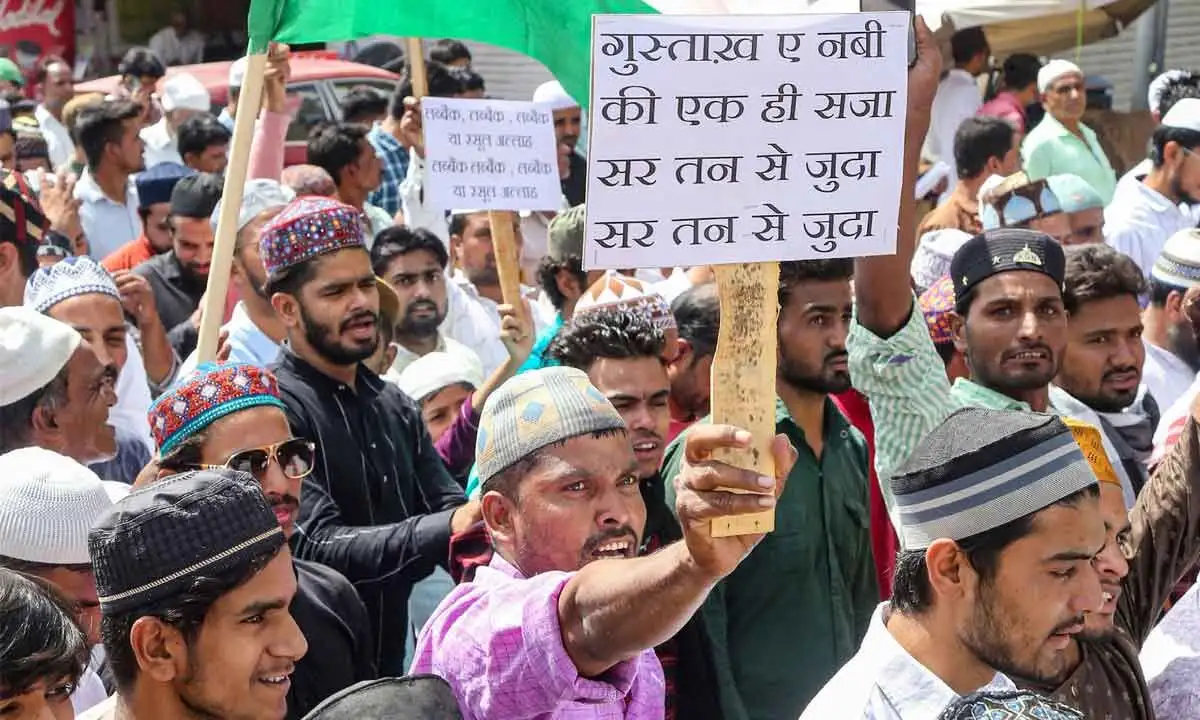 लब्बैक, लब्बैक , लब्बैक
या रसूल अल्लाह
लब्बैक लब्बैक , लब्बैक
या रसूल अल्लाह
गुस्ताख़ ए नबी
की एक ही सजा
सर तन से जुदा
सर तन से जुदा